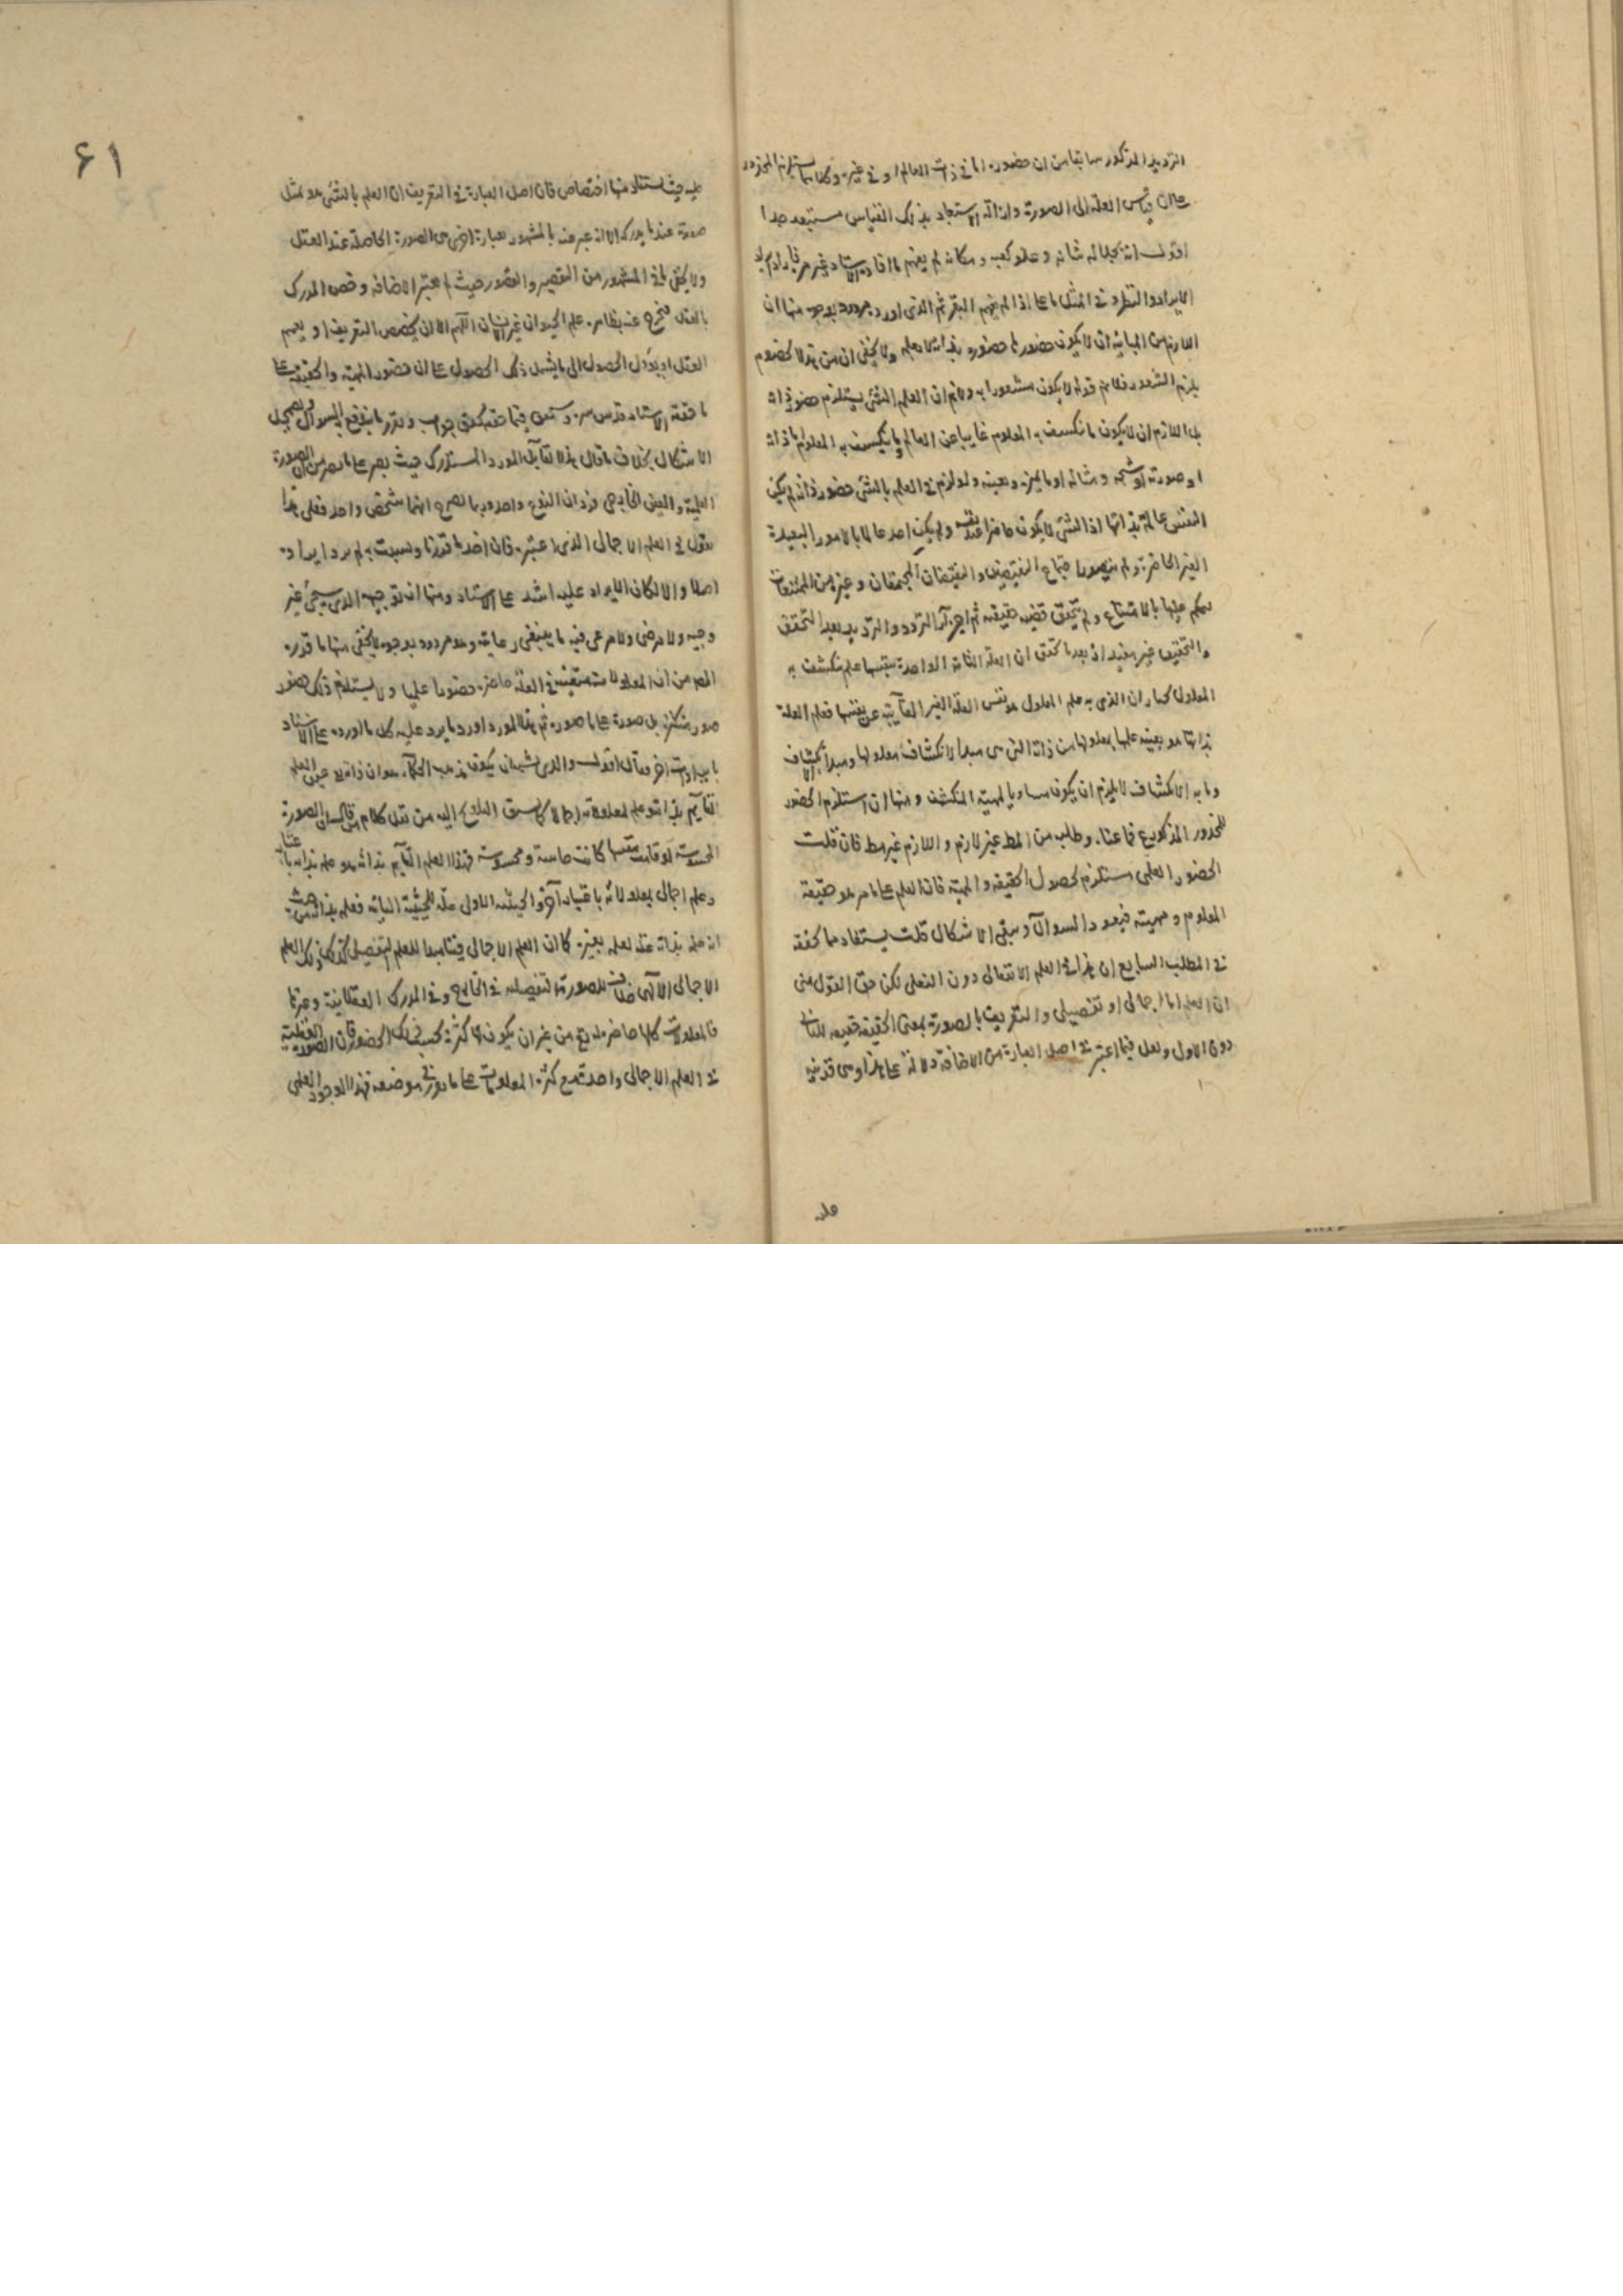 الترديد المذكور سابقا من ان حضوره اما في ذات العالم او في غيره وكلاهما يستلزم المحذور
على ان قياس العلة الى الصورة وازالة الاستبعاد بذلك القياس مستبعد جدا
اقول انه بجلالة شانه وعلو كعبه ومكانه لم يفهم ما افاده الاستاد
الايراد والنظر في المثل ما على اذا لم يفهم البقر ثم الذى اورده مردود بوجوه منها ان
اللازم من المباينة ان لا يكون حضورها حضوره بذاته لا بعلمه ولا يخفى ان من
يلزم الشعور فلا يتم قوله لا يكون مشعورا به ولا نم ان العلم بالشئ يستلزم حضور ذاته
بل اللازم ان لا يكون ما ينكشف به المعلوم غايبا عن العالم وما ينكشف به المعلوم اما ذاته
او صورته او شبحه ومثاله او ما يميزه ويعينه ولو لزم في العلم بالشئ حضور ذاته لم يكن
النفس عالمة بذاتها اذ الشئ لا يكون حاضرا عند نفسه ولم يكن احد عالما بالامور البعيدة
الغير الحاضرة ولم يتصور اجتماع النقيضين والنقيضان المجتمعان وغيره من الممتنعات
ليحكم عليها بالامتناع ولم يتحقق قضية حقيقية ثم اجراء التردد والترديد بعد التحقق
والتحقيق غير مفيد اذ بعد ما تحقق ان العلة التامة الواحدة بنفسها علم ينكشف به
المعلول كما ان الذى به علم المعلول هو نفس العلة الغير الغايبة عن نفسها فعلم العلة
بذاتها هو بعينه علمها بمعلولها من ذاته التى هى مبدا لانكشاف معلولها ومبدا الانكشاف
وما به الانكشاف لا يلزم ان يكون مساويا لمهية المنكشف ومنها ان استلزم الحضور
للمحذور المذكور مع فاعنا وطلب من المط غير لازم واللازم غير مط فان قلت
الحضور العلمى مستلزم لحصول الحقيقة والمهية فان العلم على ما مر هو حقيقة
المعلوم ومهيته فيعود السوال ويبقى الاشكال قلت يستفاد مما حققه
في المطلب السابع ان هذا في العلم الانفعالى دون الفعلى لكن حق القول منى
ان العلم اما اجمالى او تفصيلى والتعريف بالصورة بمعنى الحقيقة حقيقه للثانى
دون الاول ولعل فيما اعتبر في اصل العبارة من الاضافة دلالة على هذا وهى قرينة
عليه
۶۱
عليه حيث يستفاد منها اختصاص فان اصل العبارة في التعريف ان العلم بالشئ هو تمثل
صورته عند ما يدركه الا انه عبر عنه بالمشهور بعبارة اخرى هى الصورة الحاصلة عند العقل
ولا يخفى ما في المشهور من التقصير والقصور حيث لم يعتبر الاضافة وخص المدرك
بالعقل فخرج عنه بظاهره علم الحيوان غير الانسان اللهم الا ان يخصص التعريف او يعمم
العقل او يؤول الحصول الى ما يشمل ذلك الحصول على ان حضور المهية والحقيقة على
ما حققه الاستاد قدس سره وستعرف فيما حقه تحقق جواب وتقرر ما يندفع به السوال ويضمحل
الاشكال بخلاف ما قال هذا القايل المورد المستدرك حيث يصر على ما يصرح من ان الصورة
العلمية والعين الخارجى فردان النوع واحد وربما يصرح انهما شخص واحد فعلى هذا
يقول في العلم الاجمالى الذى اعتبره فان اخذ ما قررنا ونسبت به لم يرد ايراده
اصلا والا لكان الايراد عليه اشد على الاستاد ومنها ان توجيهه الذى سيجئ غير
وجيه ولا مرضى ولا مرعى فيه ما ينبغى رعايته وهو مردود بوجوه لا يخفى منها ما قدره
المص من ان المعلولات متعينة في العلة حاضرة حضورا علميا ولا يستلزم ذلك حضور
صور متكثرة بل صورة على ما صوره ثم هذا المورد اورد ما يرد عليه كل ما اورده على الاستاد
بايرادات اخر فقال اقول والذى يشبه ان يكون مذهب الحكماء هو ان ذاته عين العلم
القايم بذاته وعلم لمعلولاته اجمالا كما سبق التلويح اليه من نقل كلام من قال ان الصورة
المحسوسة لو قامت بنفسها كانت حاسة ومحسوسة فهذا العلم القايم بذاته هو علم بذاته باعتبار
وعلم اجمالى بمعلولاته باعتبار آخر والحيثية الاولى علة للحيثية الثانية فعلمه بذاته من حيث
انه علم بذاته علة لعلمه بغيره كما ان العلم الاجمالى فينا مبدا للعلم التفصيلى كذلك ذلك العلم
الاجمالى الالهى خلاق للصورة التفصيلية في الخارج وفي المدرك العقلانية وغيرها
فالمعلولات كلها حاضرة له تع من غير ان يكون لها كثرة بحسب ذلك الحضور فان الصورة العقلية
في العلم الاجمالى واحدة مع كثرة المعلومات على ما بين في موضعه فهذا الموجود العلمى